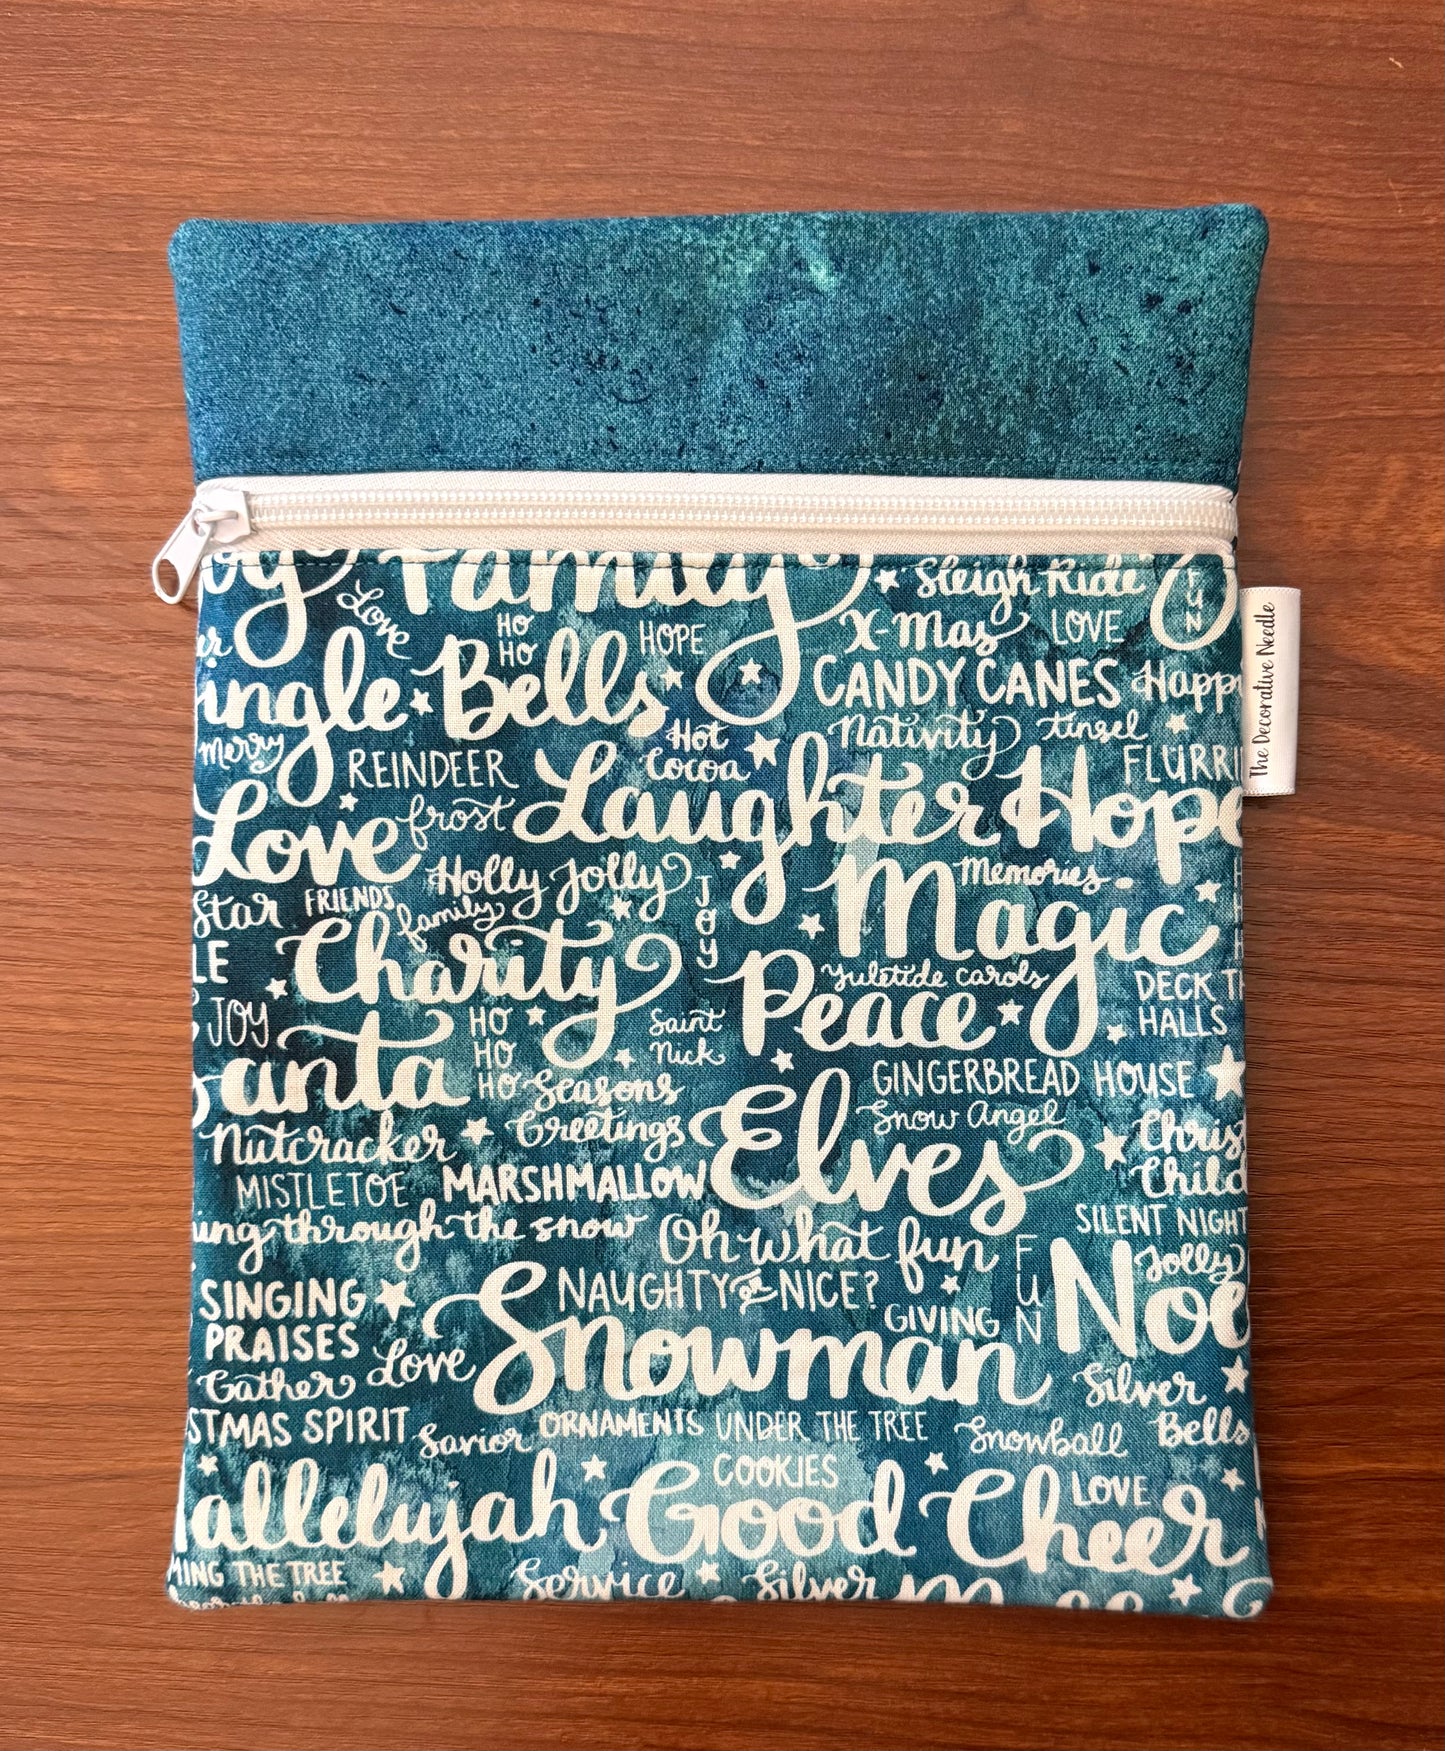 Family
Sleigh Ride
FUN
Love
HO
HO
HOPE
X-Mas
LOVE
Bells
CANDY CANES
The Decorative Needle
merry
Hot
Cocoa
Nativity
tinsel
REINDEER
Love
frost
Laughter
Hope
Holly Jolly
JOY
Memories
Star
FRIENDS
family
Magic
Charity
yuletide carols
Peace
DECK
HALLS
JOY
HO
HO
HO
Saint
Nick
GINGERBREAD HOUSE
Seasons
Greetings
Snow Angel
Elves
Christ
Child
Nutcracker
MISTLETOE
MARSHMALLOW
SILENT NIGHT
through the snow
Oh what fun
FUN
Jolly
SINGING
PRAISES
NAUGHTY or NICE?
GIVING
Love
Snowman
Gather
Silver
Bells
SPIRIT
Savior
ORNAMENTS
UNDER THE TREE
Snowball
COOKIES
LOVE
Good Cheer
THE TREE
Service
Silver